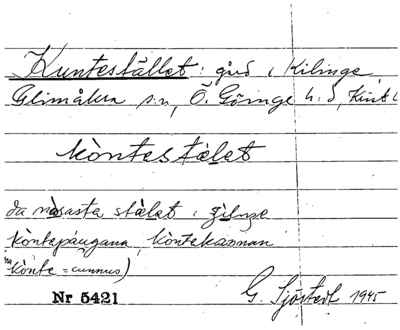 Kuntestället: gård i Kilinge,
Glimåkra s:n, Ö. Göinge h:d, Krist l
kòntestælet
da næsasta stælet i
kòntepáugana kòntekannan
kònte = cunnus)
Nr 5421 G. Sjöstedt 1945